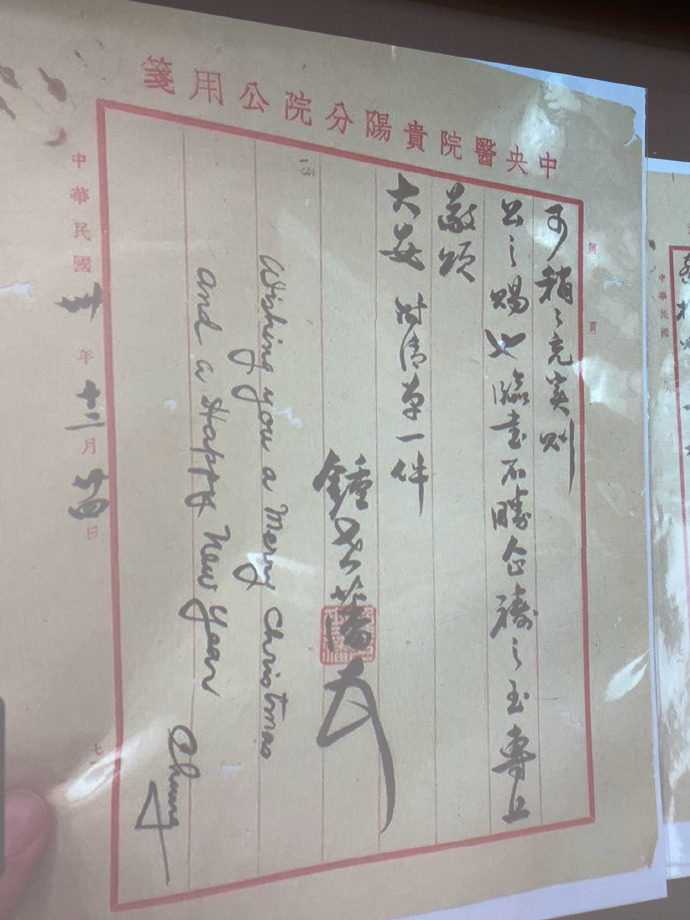 中央醫院貴陽分院公用箋
第 頁
可稍稍充實則
公之賜也臨書不勝企禱之至專此
敬頌
大安 附清單一件
鍾世藩
Wishing you a Merry Christmas
and a Happy New Year
Chung
中華民國卅年十二月廿四日
中華民國